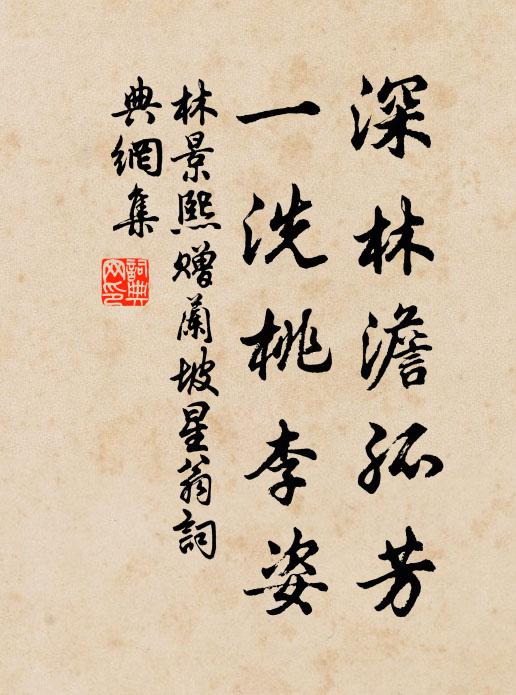 深林澹孤芳
一洗桃李姿
林景熙赠蘭坡星翁詞
典網集
詞典
网印